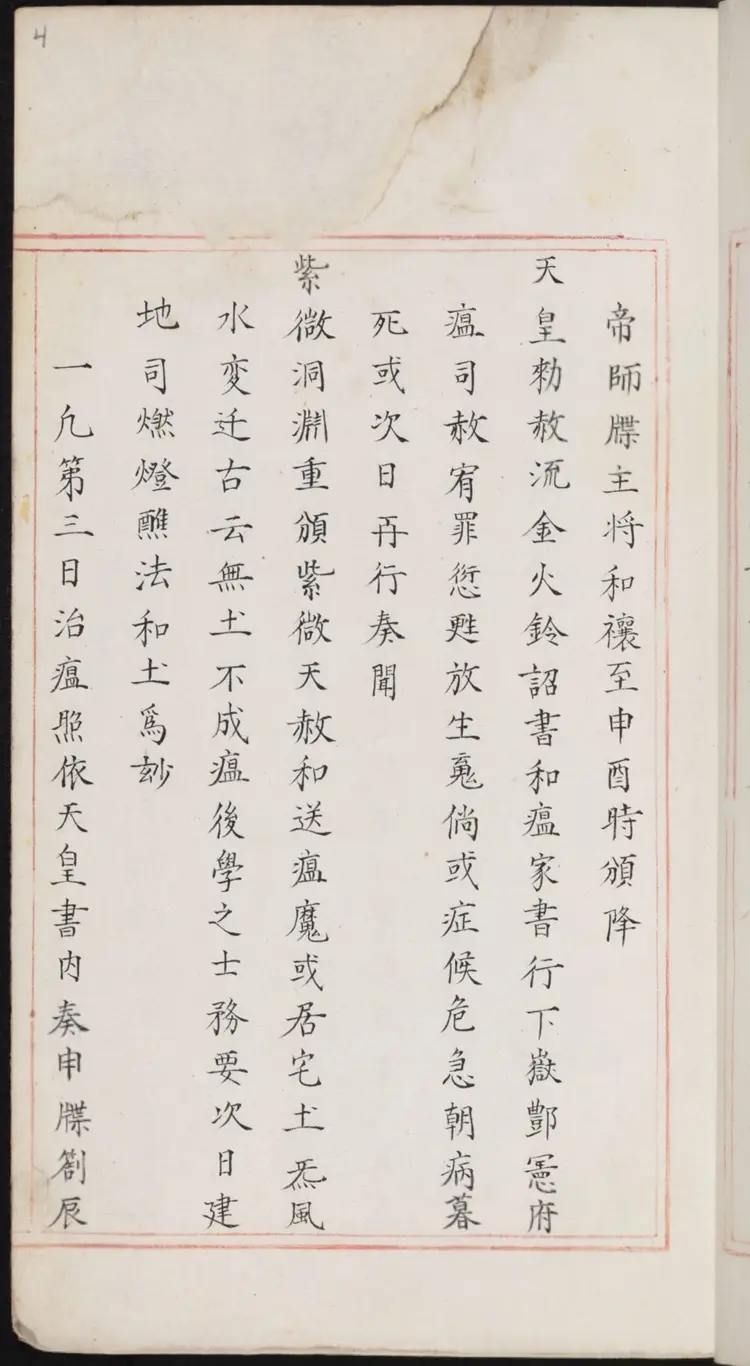 4
帝師牒主将和禳至申酉時頒降
天皇勑赦流金火鈴詔書和瘟家書行下嶽酆寭府
瘟司赦宥罪愆甦放生䰟倘或症候危急朝病暮
死或次日再行奏聞
紫微洞淵重頒紫微天赦和送瘟魔或居宅土炁風
水变迁古云無土不成瘟後學之士務要次日建
地司燃燈醮法和土爲玅
一凢第三日治瘟照依天皇書内奏申牒劄辰